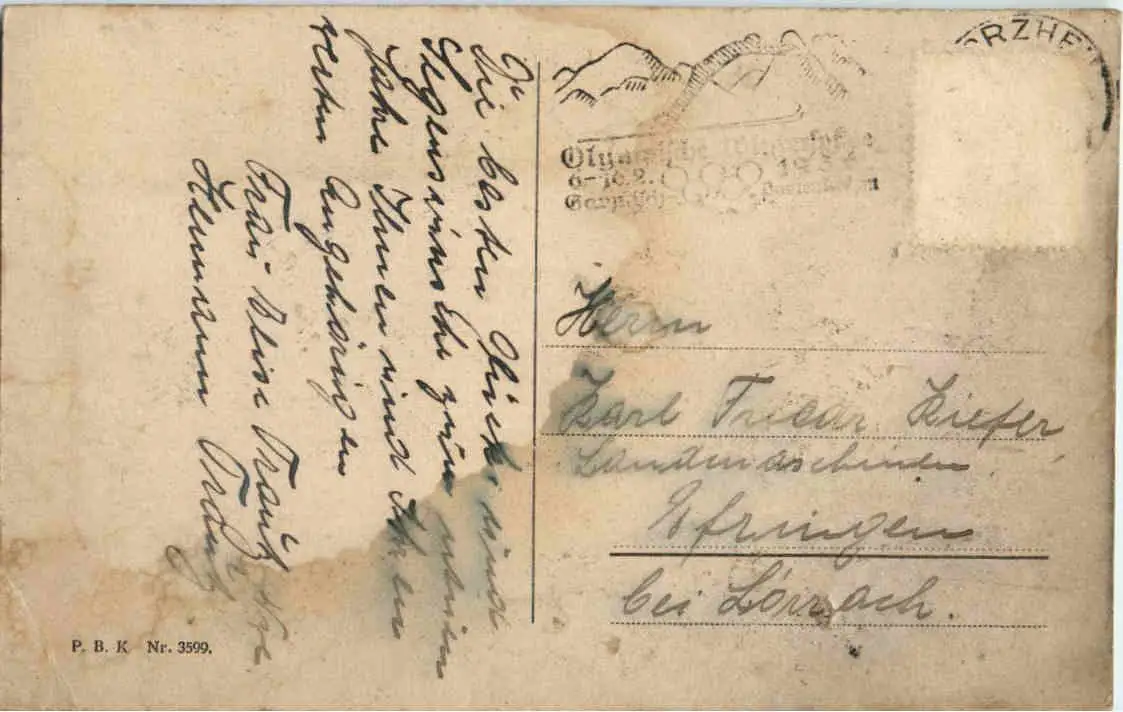 Die besten Glück- und
Segenswünsche zum neuen
Jahre Ihnen und Ihren
werten Angehörigen
Frau Wwe.
Hermann
P. B. K Nr. 3599.
RZHE
Olympische Winterspiele
6-16.2. 1936
Garmisch- Partenkirchen
Herrn
Karl Friedr. Kiefer
Landmaschinen
Efringen
bei Lörrach.